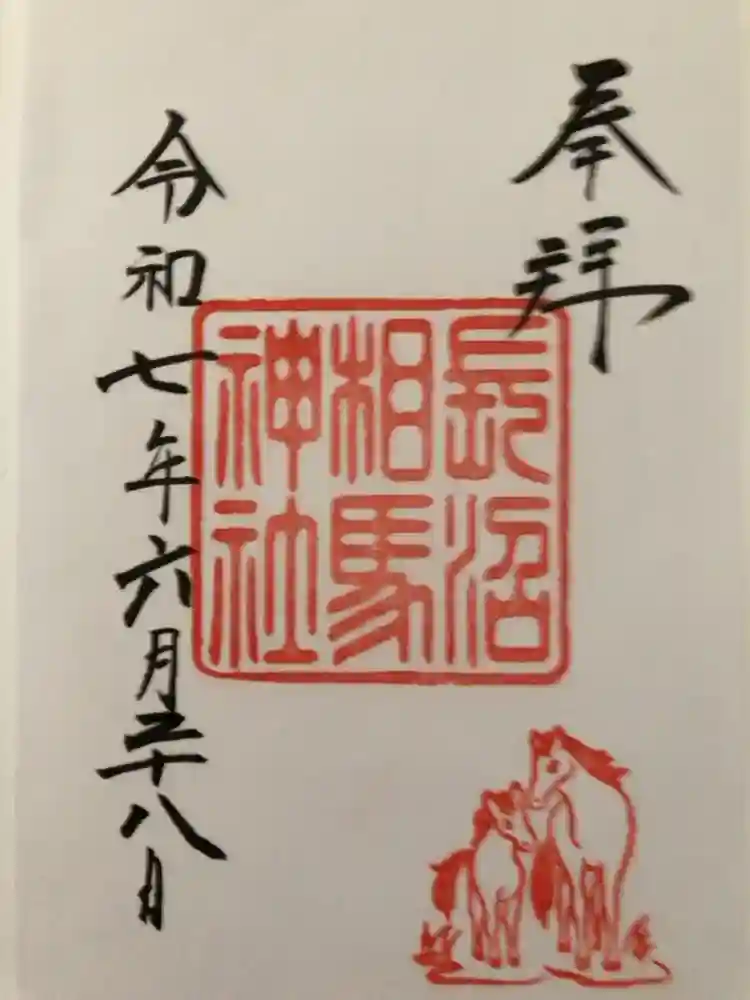 奉拝
長沼
相馬
神社
令和七年六月二十八日